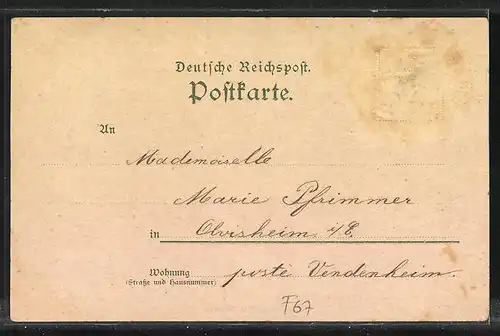 Deutsche Reichspost.
Postkarte.
An
Mademoiselle
Marie Pfrimmer
in Olvisheim i/E.
Wohnung poste Vendenheim.
(Straße und Hausnummer)
F67